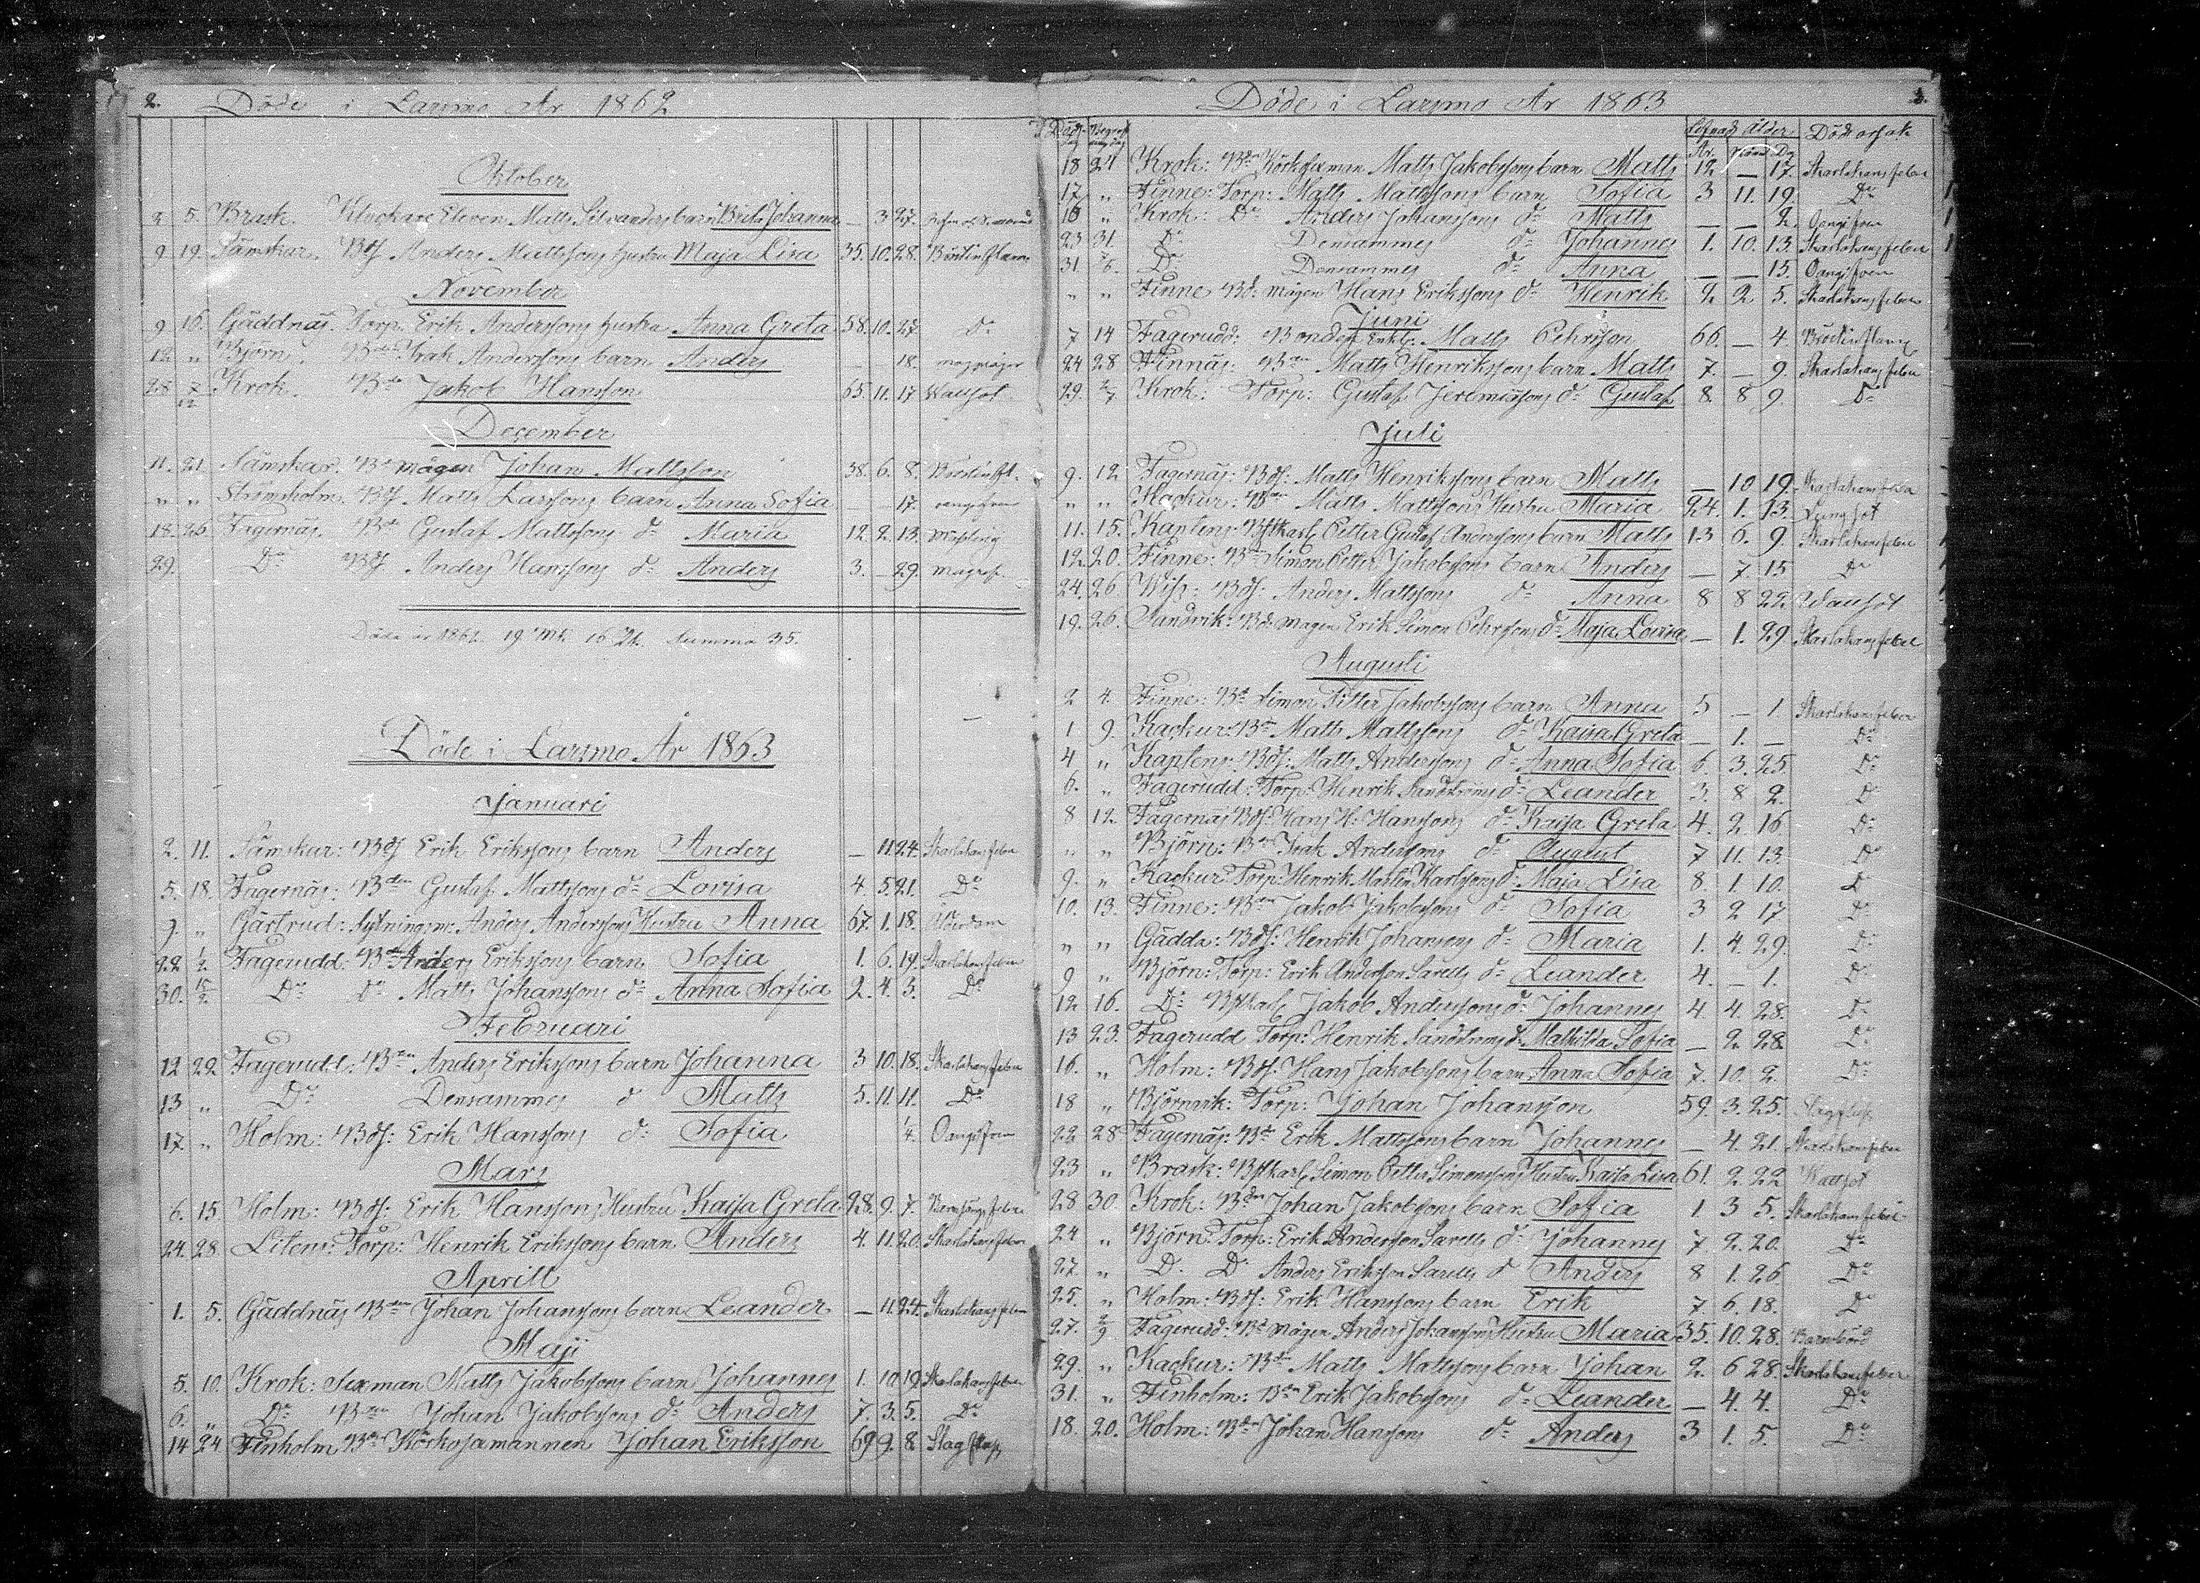 2. Döde i Larsmo År 1862
Oktober
2. 5. Brask. Klockare Eleven Matts Silvanders barn Brita Johanna — 3. 27.
9. 19. Sämskar. Bdſ Anders Mattssons hustru Maja Lisa 35. 10. 28. Bröstinflam
November
9. 16. Gäddnäs. Torp. Erik Anderssons hustru Anna Greta 58. 10. 27. Do
12. „ Björn. Bdn Isak Anderssons barn Anders — 18.
28. 7/12 Krok. Bdn Jakob Hansson 65. 11. 17 Wattsot
December
11. 21. Sämskar. Bd mågen Johan Mattsson 38. 6. 8. Bröstinfl.
„ „ Strömsholm. Bdſ Matts Larssons barn Anna Sofia — — 17.
18. 26. Fagernäs. Bdn Gustaf Mattssons do Maria 12. 2. 13. Mässling
29. Do Bdſ Anders Hanssons do Anders 3. — 29. magref.
Döde år 1862. 19 Mk. 16 Qk. Summa 35.
Döde i Larsmo År 1863
Januari
2. 11. Sämskar: Bdſ Erik Erikssons barn Anders — 11. 24. Skarlakansfeber
5. 18. Fagernäs: Bdn Gustaf Mattssons do Lovisa 4. 5. 21. Do
9. „ Gärtrud: Sytningsm: Anders Anderssons Hustru Anna 67. 1. 18. Ålderdom
22 1/2 Fagerudd: Bdn Anders Erikssons barn Sofia 1. 6. 14. Skarlakansfeber
30. 15/2 Do Do Matts Johanssons do Anna Sofia 2. 4. 3. Do
Februari
12 22 Fagerudd: Bdn Anders Erikssons barn Johanna 3 10. 18. Skarlakansfeber
13 „ Do Densammes d Matts 5. 11. 11. Do
17. „ Holm: Bdſ: Erik Hanssons do Sofia Oangifven
Mars
6. 15. Holm: Bdſ: Erik Hanssons Hustru Kaisa Greta 28. 9. 7. Barnsängsfeber
24. 28. Litens: Torp: Henrik Erikssons barn Anders 4. 11. 20. Skarlakansfeber
Aprill
1. 5. Gäddnäs Bdn Johan Johanssons barn Leander — 11. 24. Skarlakansfeber
Maji
5. 10. Krok: Sexman Matts Jakobssons barn Johannes 1. 10. 19. Skarlakansfeber
6. „ Do Bdn Johan Jakobssons do Anders 7. 3. 5. Do
14 24 Finholm Bdn Johan Eriksson 69 9. 8. Slagfluss
Döde i Larsmo År 1863 3.
Döds dag Begrafnings dag Lefnads ålder Dödsorsak
År. Månd Dg
18 24 Krok: Bdn Kyrkosexman Matts Jakobssons barn Matts 12 — 17. Skarlakansfeber
17. „ Finne: Torp: Matts Mattssons barn Sofia 3 11. 19. Do
18 „ Krok: Do Anders Johanssons do Matts — — 2. Oangifven
23 31. Do Densammes do Johannes 1. 10. 13. Skarlakansfeber
31. 7/6. Do Densammes do Anna — — 15. Oangifven
„ „ Finne Bd: mågen Hans Erikssons do Henrik 2 2 5. Skarlakansfeber
Juni
7 14 Fagerudd: Bonden Enkl: Matts Pehrsson 66. — 4 Bröstinflam
24 28 Finnäs: Bdn Matts Henrikssons barn Matts 7. — 9. Skarlakansfeber
29. 2/7 Krok: Torp: Gustaf Jeremiassons do Gustaf 8. 8 9. Do
Juli
9. 12 Fagernäs: Bdſ: Matts Henrikssons barn Matts — 10 19. Skarlakansfeber
„ „ Kackur: Bdn Matts Mattssons Hustru Maria 24. 1. 13. Lungsot
11. 15. Kaplens: Bſtkarl Petter Gustaf Anderssons barn Matts 13 6. 9. Skarlakansfeber
12. 20. Finne: Bdn Simon Petter Jakobssons barn Anders — 7. 15 Do
24. 26. Wiss: Bdſ: Anders Mattssons do Anna 8 8 22 Wattsot
19. 26. Sandvik: Bd: mågen Erik Simon Pehrssons do Maja Lovisa — 1. 29 Skarlakansfeber
Augusti
2 4. Finne: Bdn Simon Petter Jakobssons barn Anna 5 — 1. Skarlakansfeber
1 9. Kackur: Bdn Matts Mattssons do Kaisa Greta — 1. — Do
4 „ Kaplens: Bdſ: Matts Anderssons do Anna Sofia 6. 3. 25. Do
6. „ Fagerudd: Torp: Henrik Sandströms do Leander 3. 8 2. Do
8 12. Fagernäs Bdſ: Hans H. Hanssons do Kaisa Greta 4. 2 16 Do
„ „ Björn: Bdn Isak Anderssons do August 7 11. 13. Do
9. „ Kackur Torp: Henrik Martin Karlssons d Maja Lisa 8. 1. 10. Do
10. 13. Finne: Bdn Jakob Jakobssons do Sofia 3 2 17 Do
„ „ Gädda: Bdſ: Henrik Johanssons do Maria 1. 4. 29. Do
9 „ Björn: Torp: Erik Andersson Sarells do Leander 4. — 1. Do
12 16. Do Bſtkarl Jakob Anderssons do Johannes 4 4. 28. Do
13 23. Fagerudd Torp: Henrik Sandströms d Mathilda Sofia — 2 28. Do
16. „ Holm: Bdſ: Hans Jakobssons barn Anna Sofia 7. 10. 2. Do
18 „ Björnvik: Torp: Johan Johansson 59. 3. 25. Slagfluss
22 28 Fagernäs: Bdn Erik Mattssons barn Johannes — 4. 21. Skarlakansfeber
23 „ Brask: Bſtkarl Simon Petter Simonssons Hustru Kaisa Lisa 61. 2. 22 Wattsot
28 30. Krok: Bdn Johan Jakobssons barn Sofia 1 3 5. Skarlakansfeber
24 „ Björn: Torp: Erik Andersson Sarells do Johannes 7 2. 20. Do
27. „ D. Do Anders Eriksson Sarells d Anders 8 1. 26 Do
25. „ Holm: Bdſ: Erik Hanssons barn Erik 7 6. 18. Do
27. 2/9 Fagerudd: Bd mågen Anders Johanssons Hustru Maria 35. 10. 28. Barnsbörd
29. „ Kackur: Bdn Matts Mattssons barn Johan 2. 6 28. Skarlakansfeber
31. „ Finholm: Bdn Erik Jakobssons do Leander — 4. 4. Do
18. 20. Holm: Bdn Johan Hanssons do Anders 3 1. 5. Do